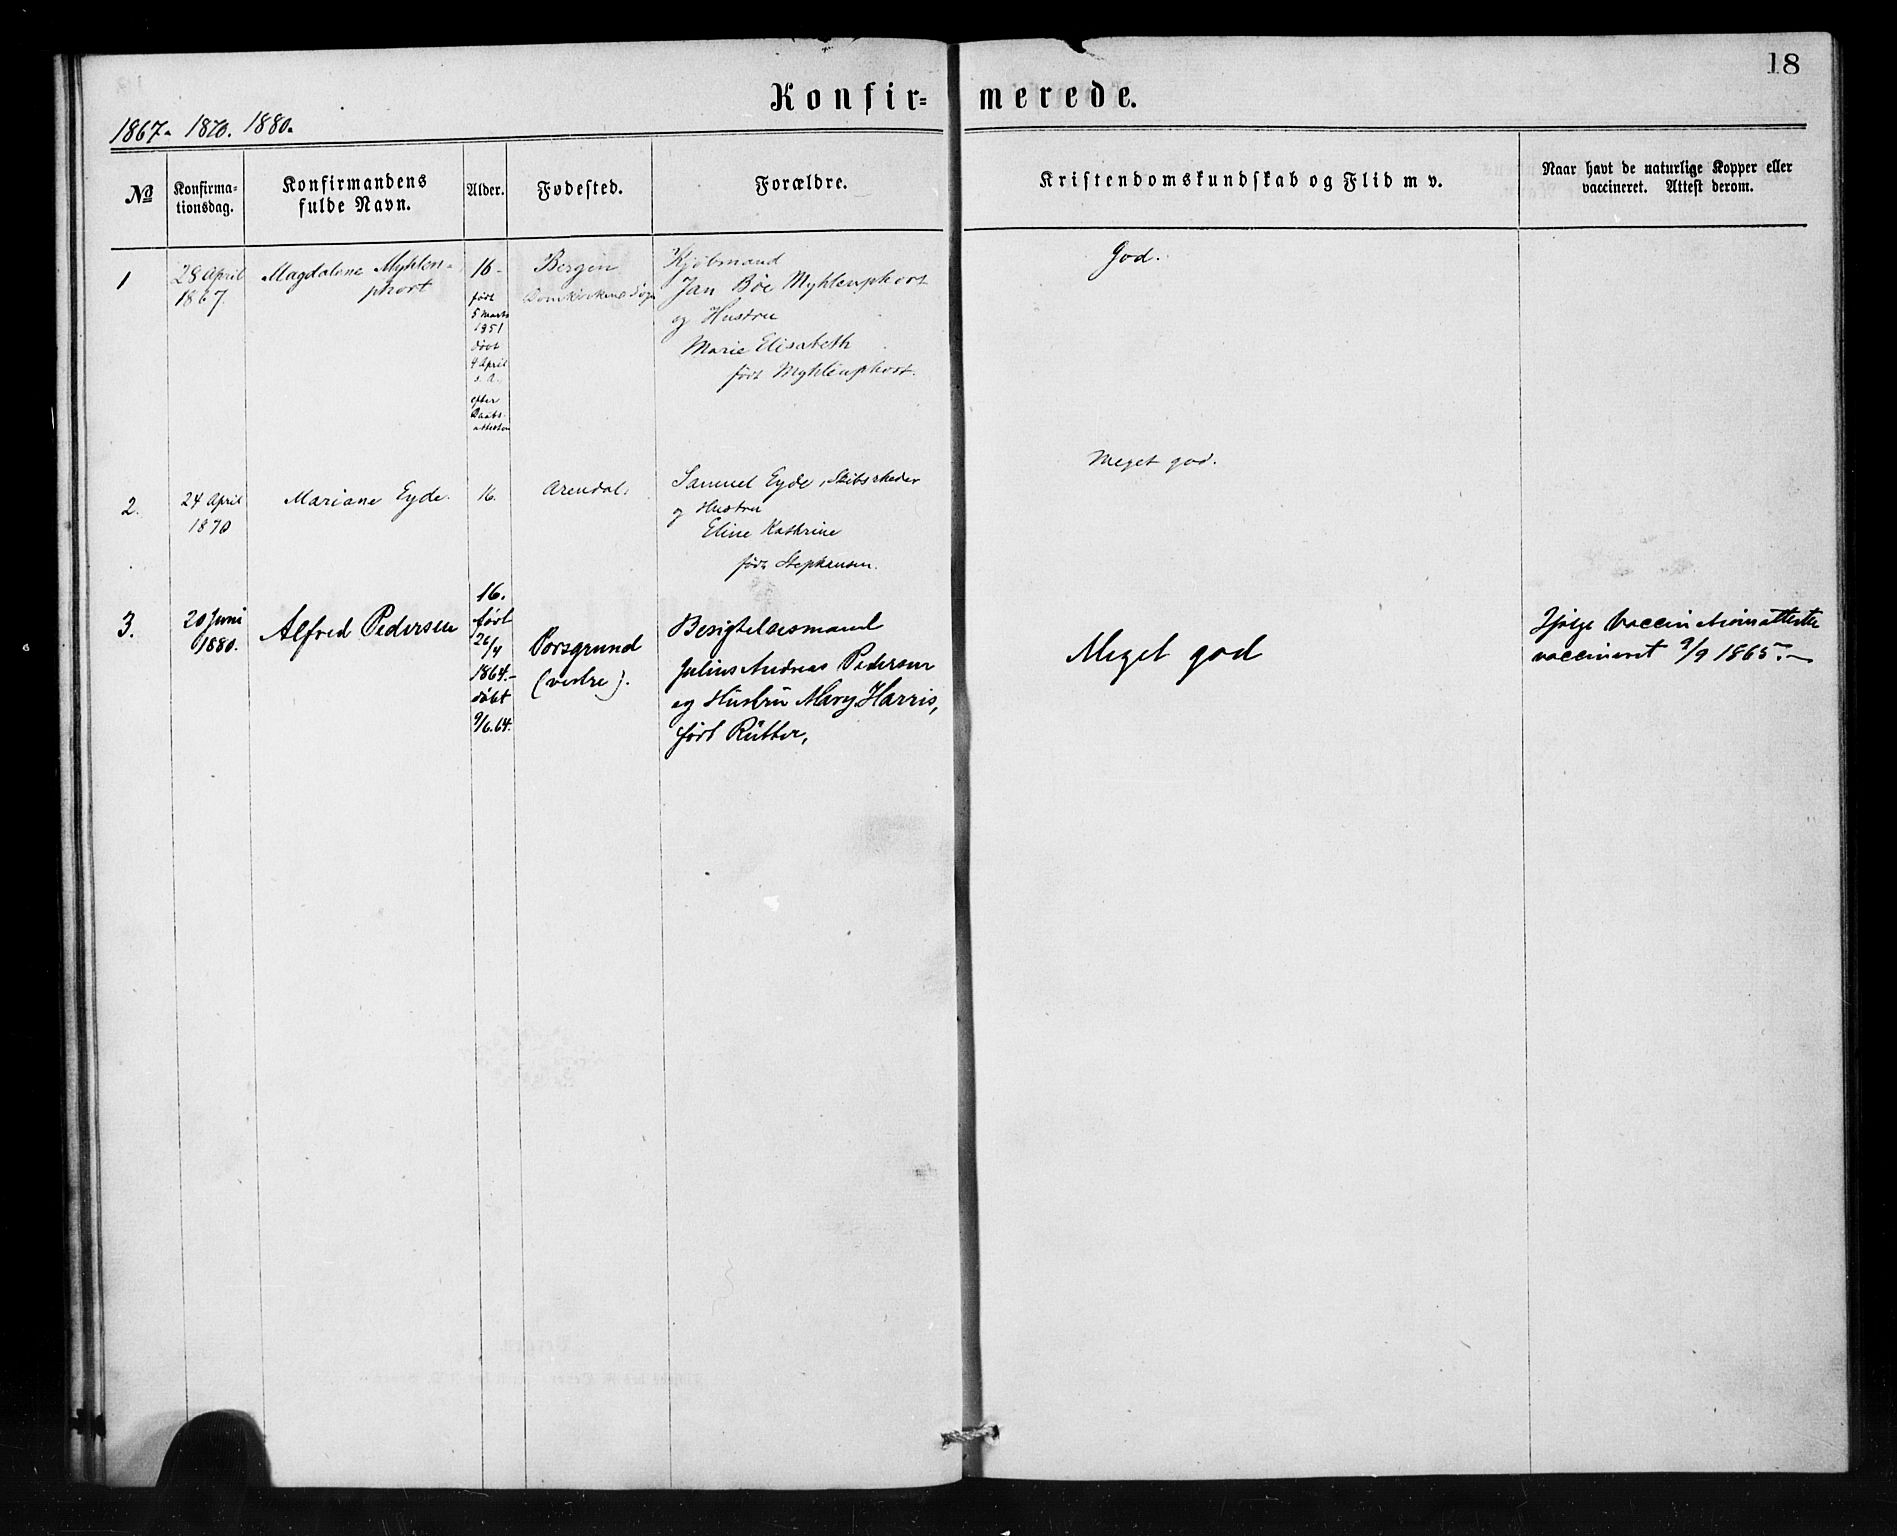 18
Konfir= merede.
1867. 1870. 1880.
No
Konfirma-
tionsdag.
Konfirmandens
fulde Navn.
Alder.
Fødested.
Forældre.
Kristendomskundskab og Flid m v.
Naar havt de naturlige Kopper eller
vaccineret. Attest derom.
1
28 April
1867.
Magdalene Myhlen-
phort
16
født
5 Marts
1851
døbt
4 April
s. A.
efter
Daabs-
attesten
Bergen
Domkirkens Sogn
Kjøbmand
Jan Bøe Myhlenphort
og Hustru
Marie Elisabeth
født Myhlenphort.
God.
2.
24 April
1870
Mariane Eyde.
16.
Arendal.
Samuel Eyde, Skibsrheder
og Hustru
Eline Kathrine
født Stephansen.
Meget god.
3.
20 Juni
1880.
Alfred Pedersen
16.
født
26/4
1864.-
døbt
9/6.64.
Porsgrund
(vestre).
Besigtelsesmand
Julius Andreas Pedersen
og Hustru Mary Harris,
født Rütter,
Meget god
Ifølge Vaccinationsattest
vaccineret 9/9 1865.-